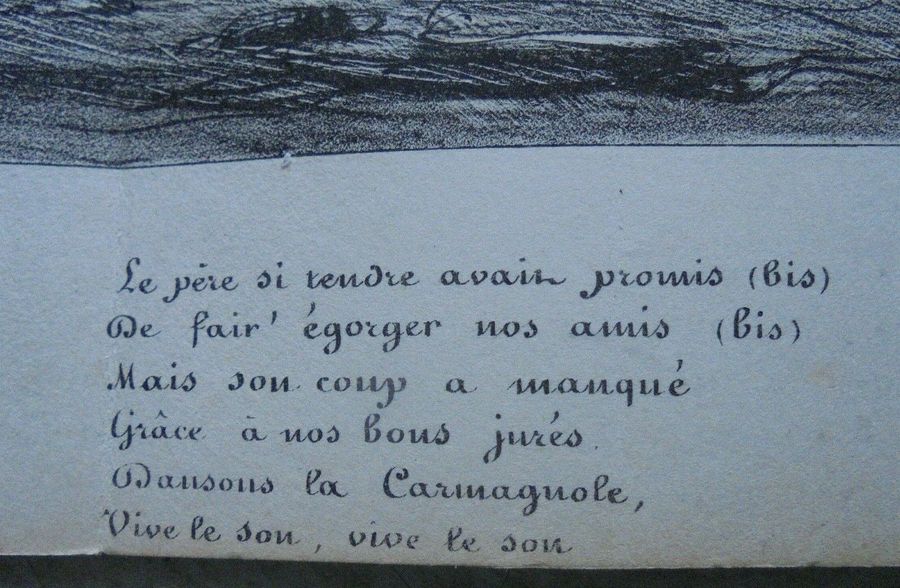 Le père si tendre avait promis (bis)
De fair' égorger nos amis (bis)
Mais son coup a manqué
Grâce à nos bons jurés.
Dansons la Carmagnole,
Vive le son, vive le son